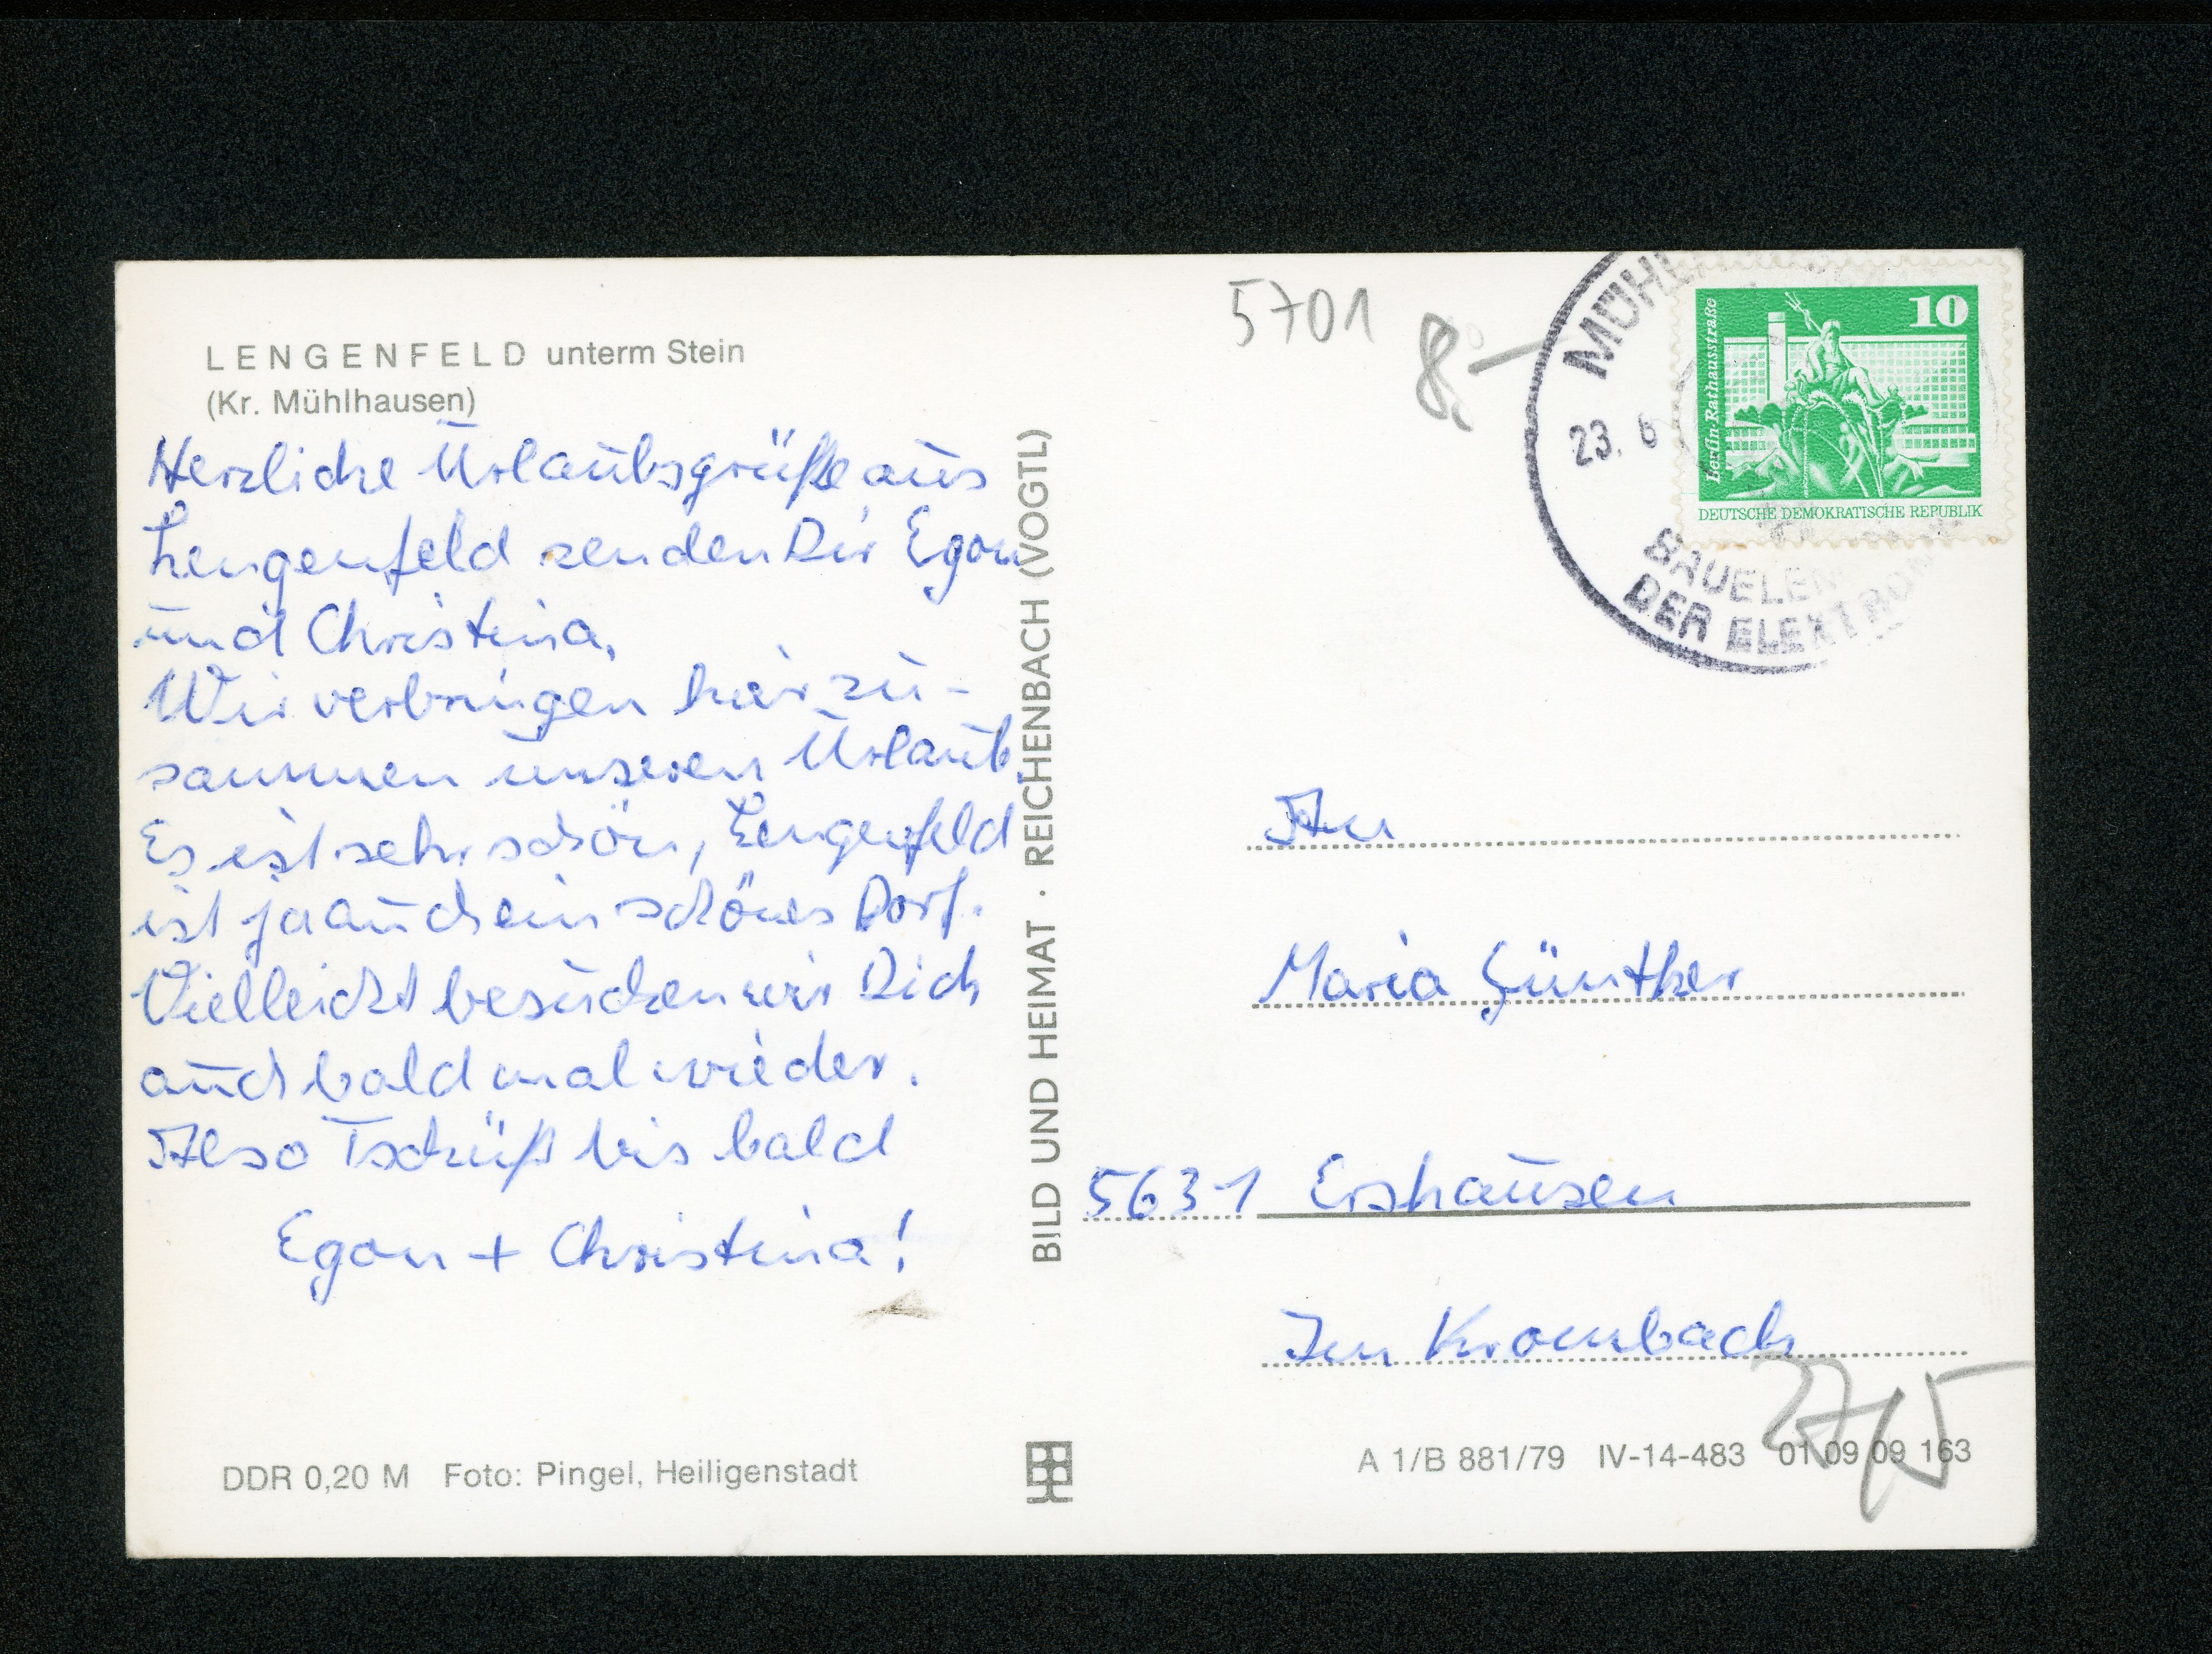 LENGENFELD unterm Stein
(Kr. Mühlhausen)
Herzliche Urlaubsgrüße aus
Lengenfeld senden Dir Egon
und Christina.
Wir verbringen hier zu-
sammen unseren Urlaub.
Es ist sehr schön, Lengenfeld
ist ja auch ein schönes Dorf.
Vielleicht besuchen wir Dich
auch bald mal wieder.
Also Tschüß bis bald
Egon + Christina!
DDR 0,20 M Foto: Pingel, Heiligenstadt
BILD UND HEIMAT · REICHENBACH (VOGTL)
5701
8,-
MÜHL
23. 6
BAUELEM
DER ELEKTRON
Berlin-Rathausstraße
10
DEUTSCHE DEMOKRATISCHE REPUBLIK
An
Maria Günther
5631 Ershausen
Im Krombach
A 1/B 881/79 IV-14-483 01 09 09 163